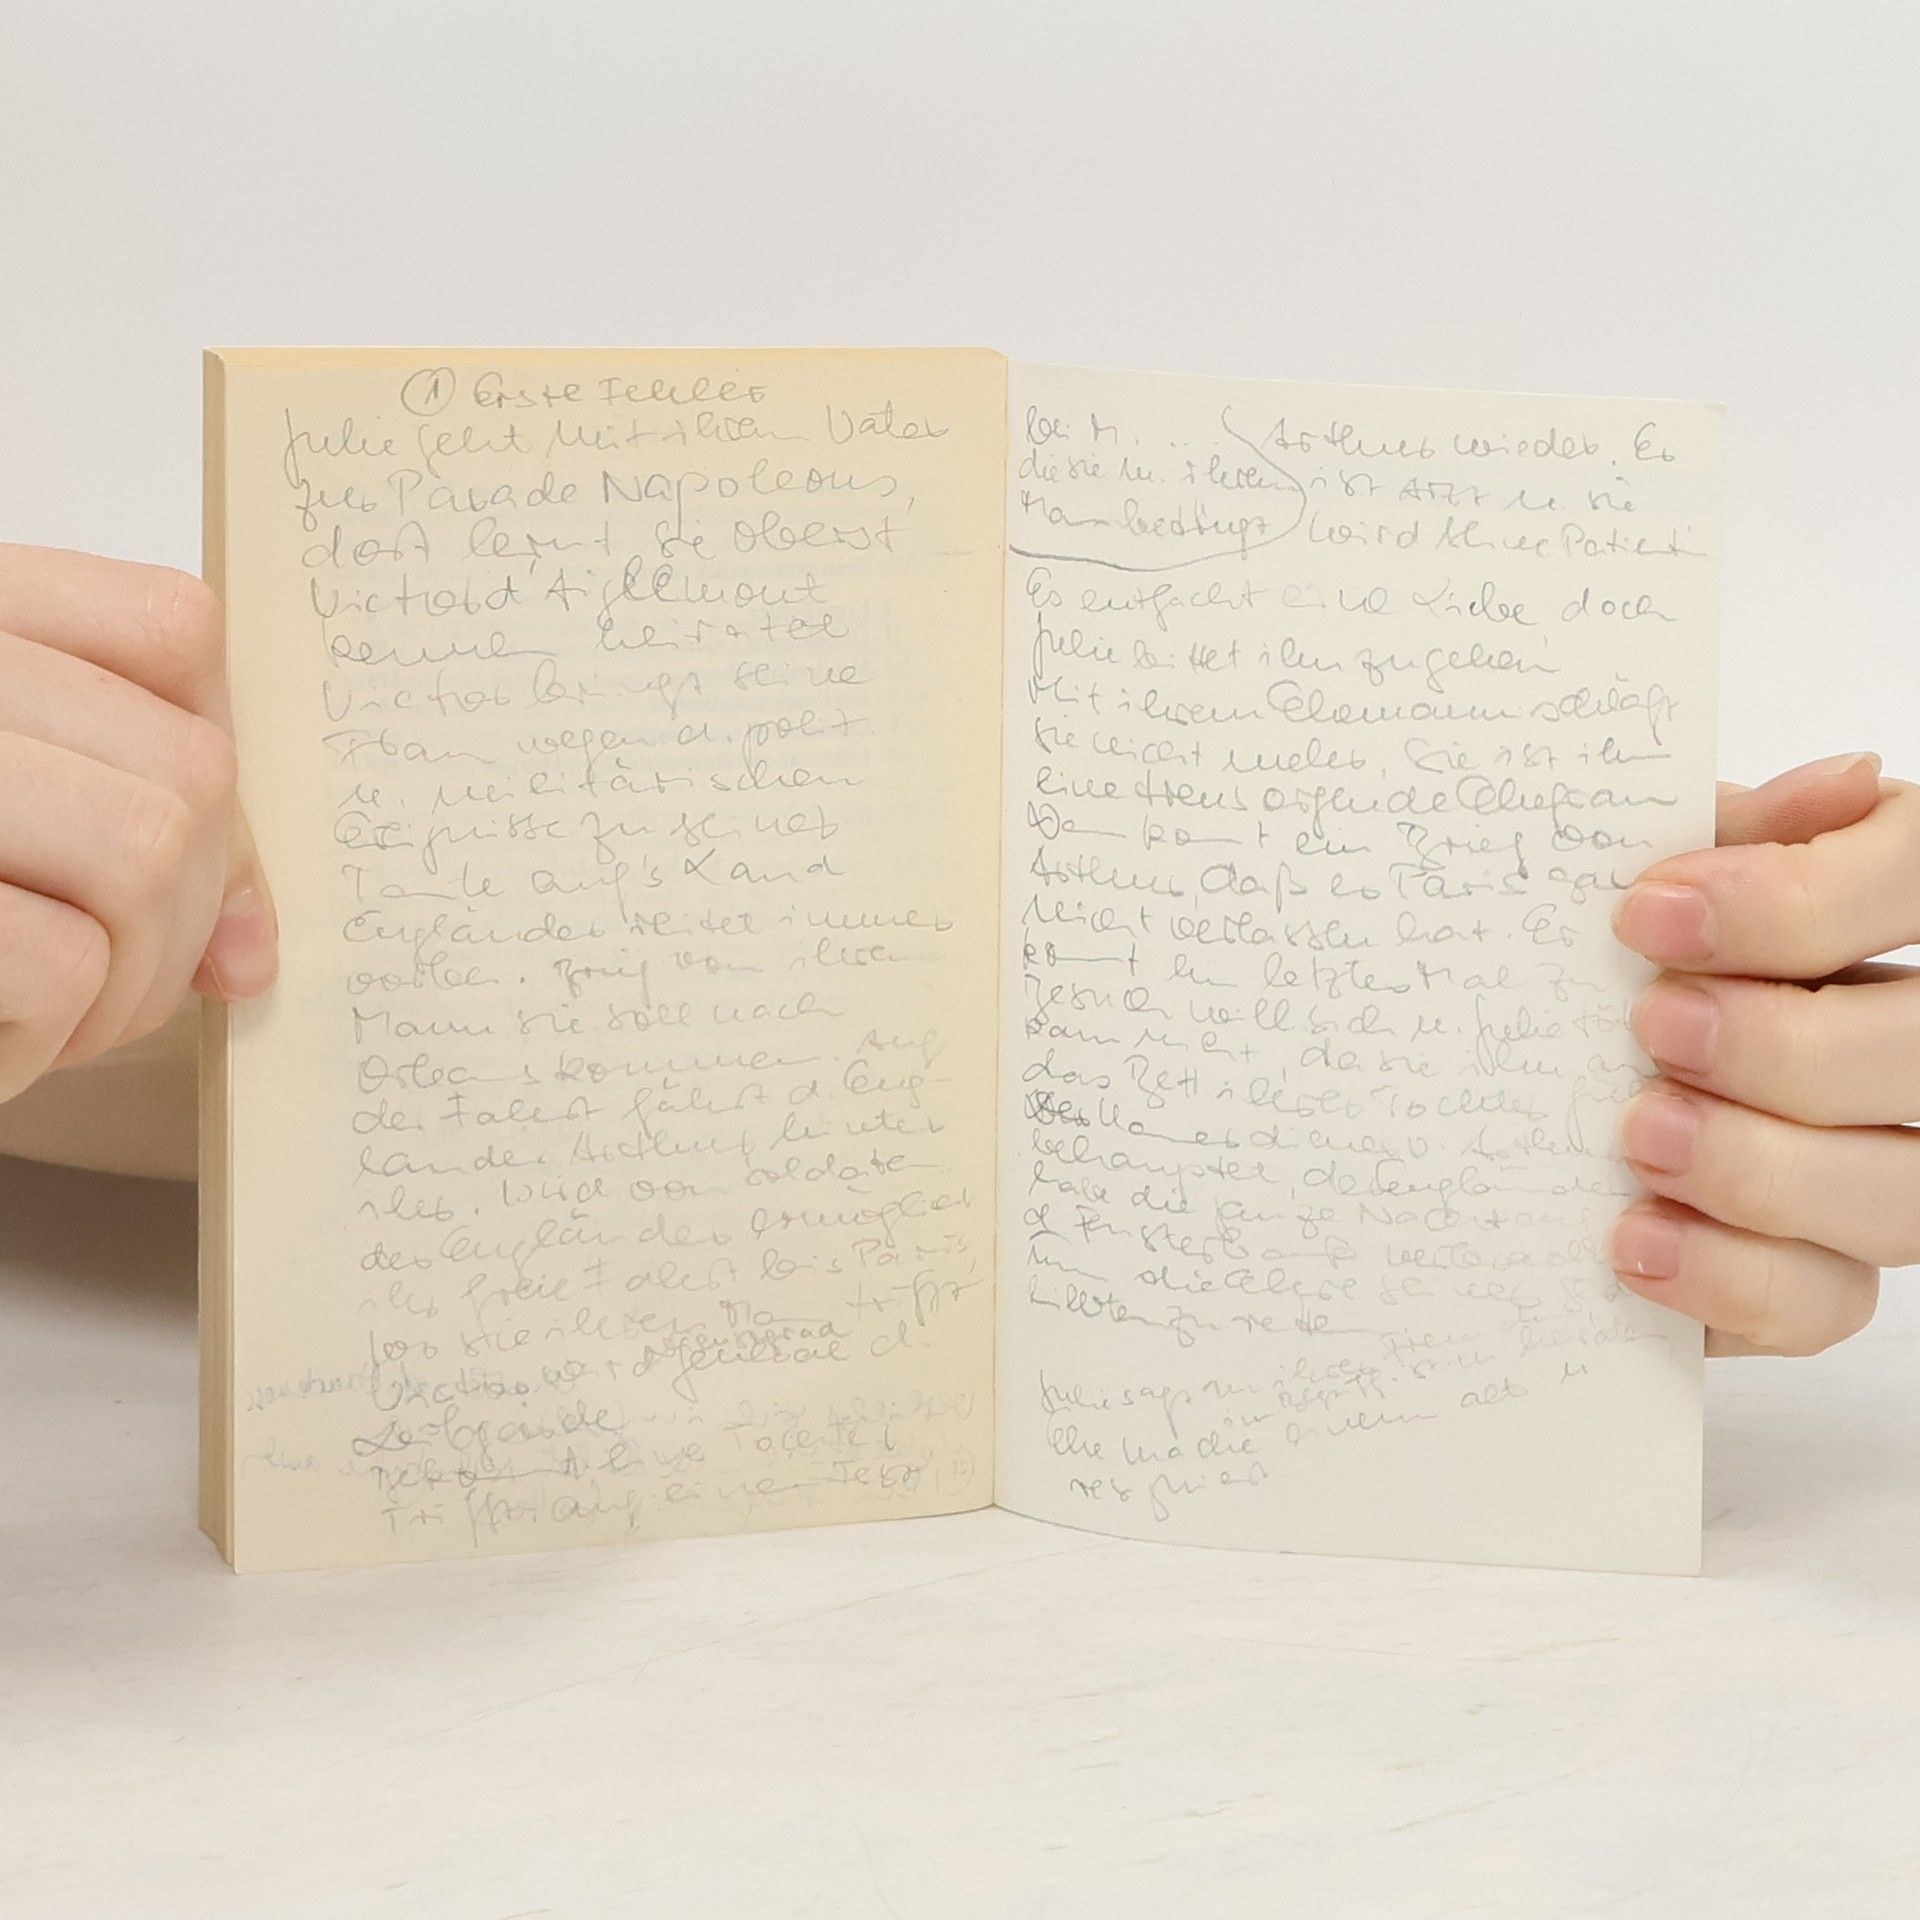 ① Erste Fehler
Julie geht mit ihrem Vater
zur Parade Napoleons,
dort lernt sie Oberst
Victor d'Aiglemont
kennen heiratet
Victor bringt seine
Frau wegen d. polit
u. militärischen
Ereignisse zu seiner
Tante auf's Land
Engländer reitet immer
vorbei. Brief von ihrem
Mann sie soll nach
Orleans kommen. Auf
der Fahrt fährt d. Eng-
länder Arthur hinter
ihr. Wird von Soldaten
der Engländer ermöglicht
ihr freie Fahrt bis Paris,
wo sie ihren Mann trifft
Victor wird General d.
Leibgarde
Bekommt eine Tochter
Trifft auf einem Fest
bei M. ...
die sie m. ihrem
Mann bedingt
Arthur wieder. Er
ist Arzt u. sie
wird seine Patientin
Es entfacht eine Liebe, doch
Julie bittet ihn zu gehen
Mit ihrem Ehemann schläft
sie nicht mehr. Sie ist ihm
eine treusorgende Ehefrau
Dann kommt ein Brief von
Arthur, daß er Paris gar
nicht verlassen hat. Er
kommt ein letztes Mal zu
Besuch will sich u. Julie
kann nicht, da sie ihn an
das Bett ihrer Tochter
Der Kammerdiener v. Arthur
behauptet, der Engländer
habe die ganze Nacht auf
d Fensterbank verbracht
um die Ehre seiner
zu retten
Julie sagt zu ihrer Freundin
Ehe mache einen alt u